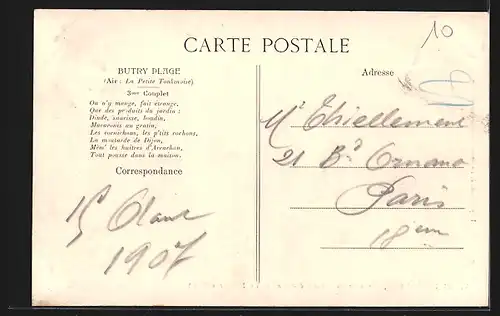 10
CARTE POSTALE
BUTRY PLAGE
(Air : La Petite Tonkinoise)
3me Couplet
On n'y mange, fait étrange,
Que des produits du jardin :
Dinde, saucisse, boudin,
Macaronis au gratin,
Les cornichons, les p'tits cochons,
La moutarde de Dijon,
Mêm' les huîtres d'Arcachon,
Tout pousse dans la maison.
Correspondance
15 Août
1907
Adresse
Mr Thiellement
21 Bd Ornano
Paris
18eme